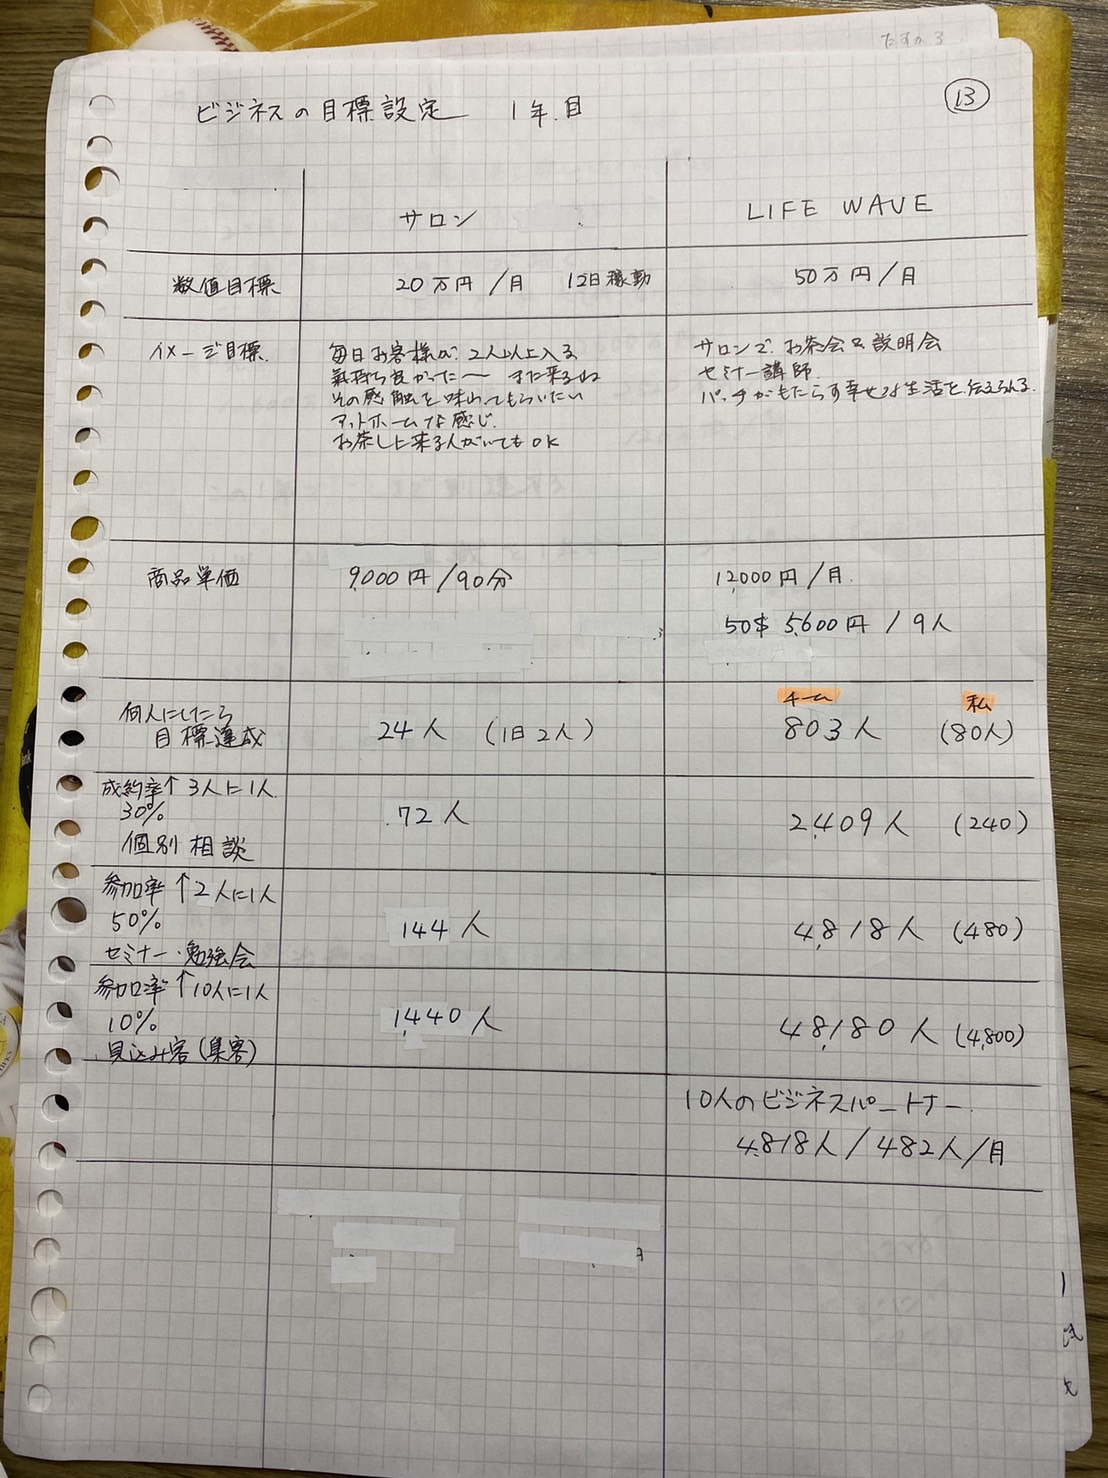 13
ビジネスの目標設定 1年目
サロン
LIFE WAVE
数値目標
20万円/月 12日稼動
50万円/月
イメージ目標
毎日お客様が2人以上入る
氣持ち良かった〜 また来るね
その感触を味わってもらいたい
アットホームな感じ
お茶しに来る人がいてもOK
サロンで お茶会&説明会
セミナー講師
パッチがもたらす幸せな生活を伝えられる
商品単価
9,000円/90分
12,000円/月
50$ 5,600円/9人
何人にしたら
目標達成
24人 (1日2人)
チーム
803人
私
(80人)
成約率↑3人に1人
30%
個別相談
72人
2,409人 (240)
参加率↑2人に1人
50%
セミナー・勉強会
144人
4,818人 (480)
参加率↑10人に1人
10%
見込み客(集客)
1,440人
48,180人 (4,800)
10人のビジネスパートナー
4,818人/482人/月